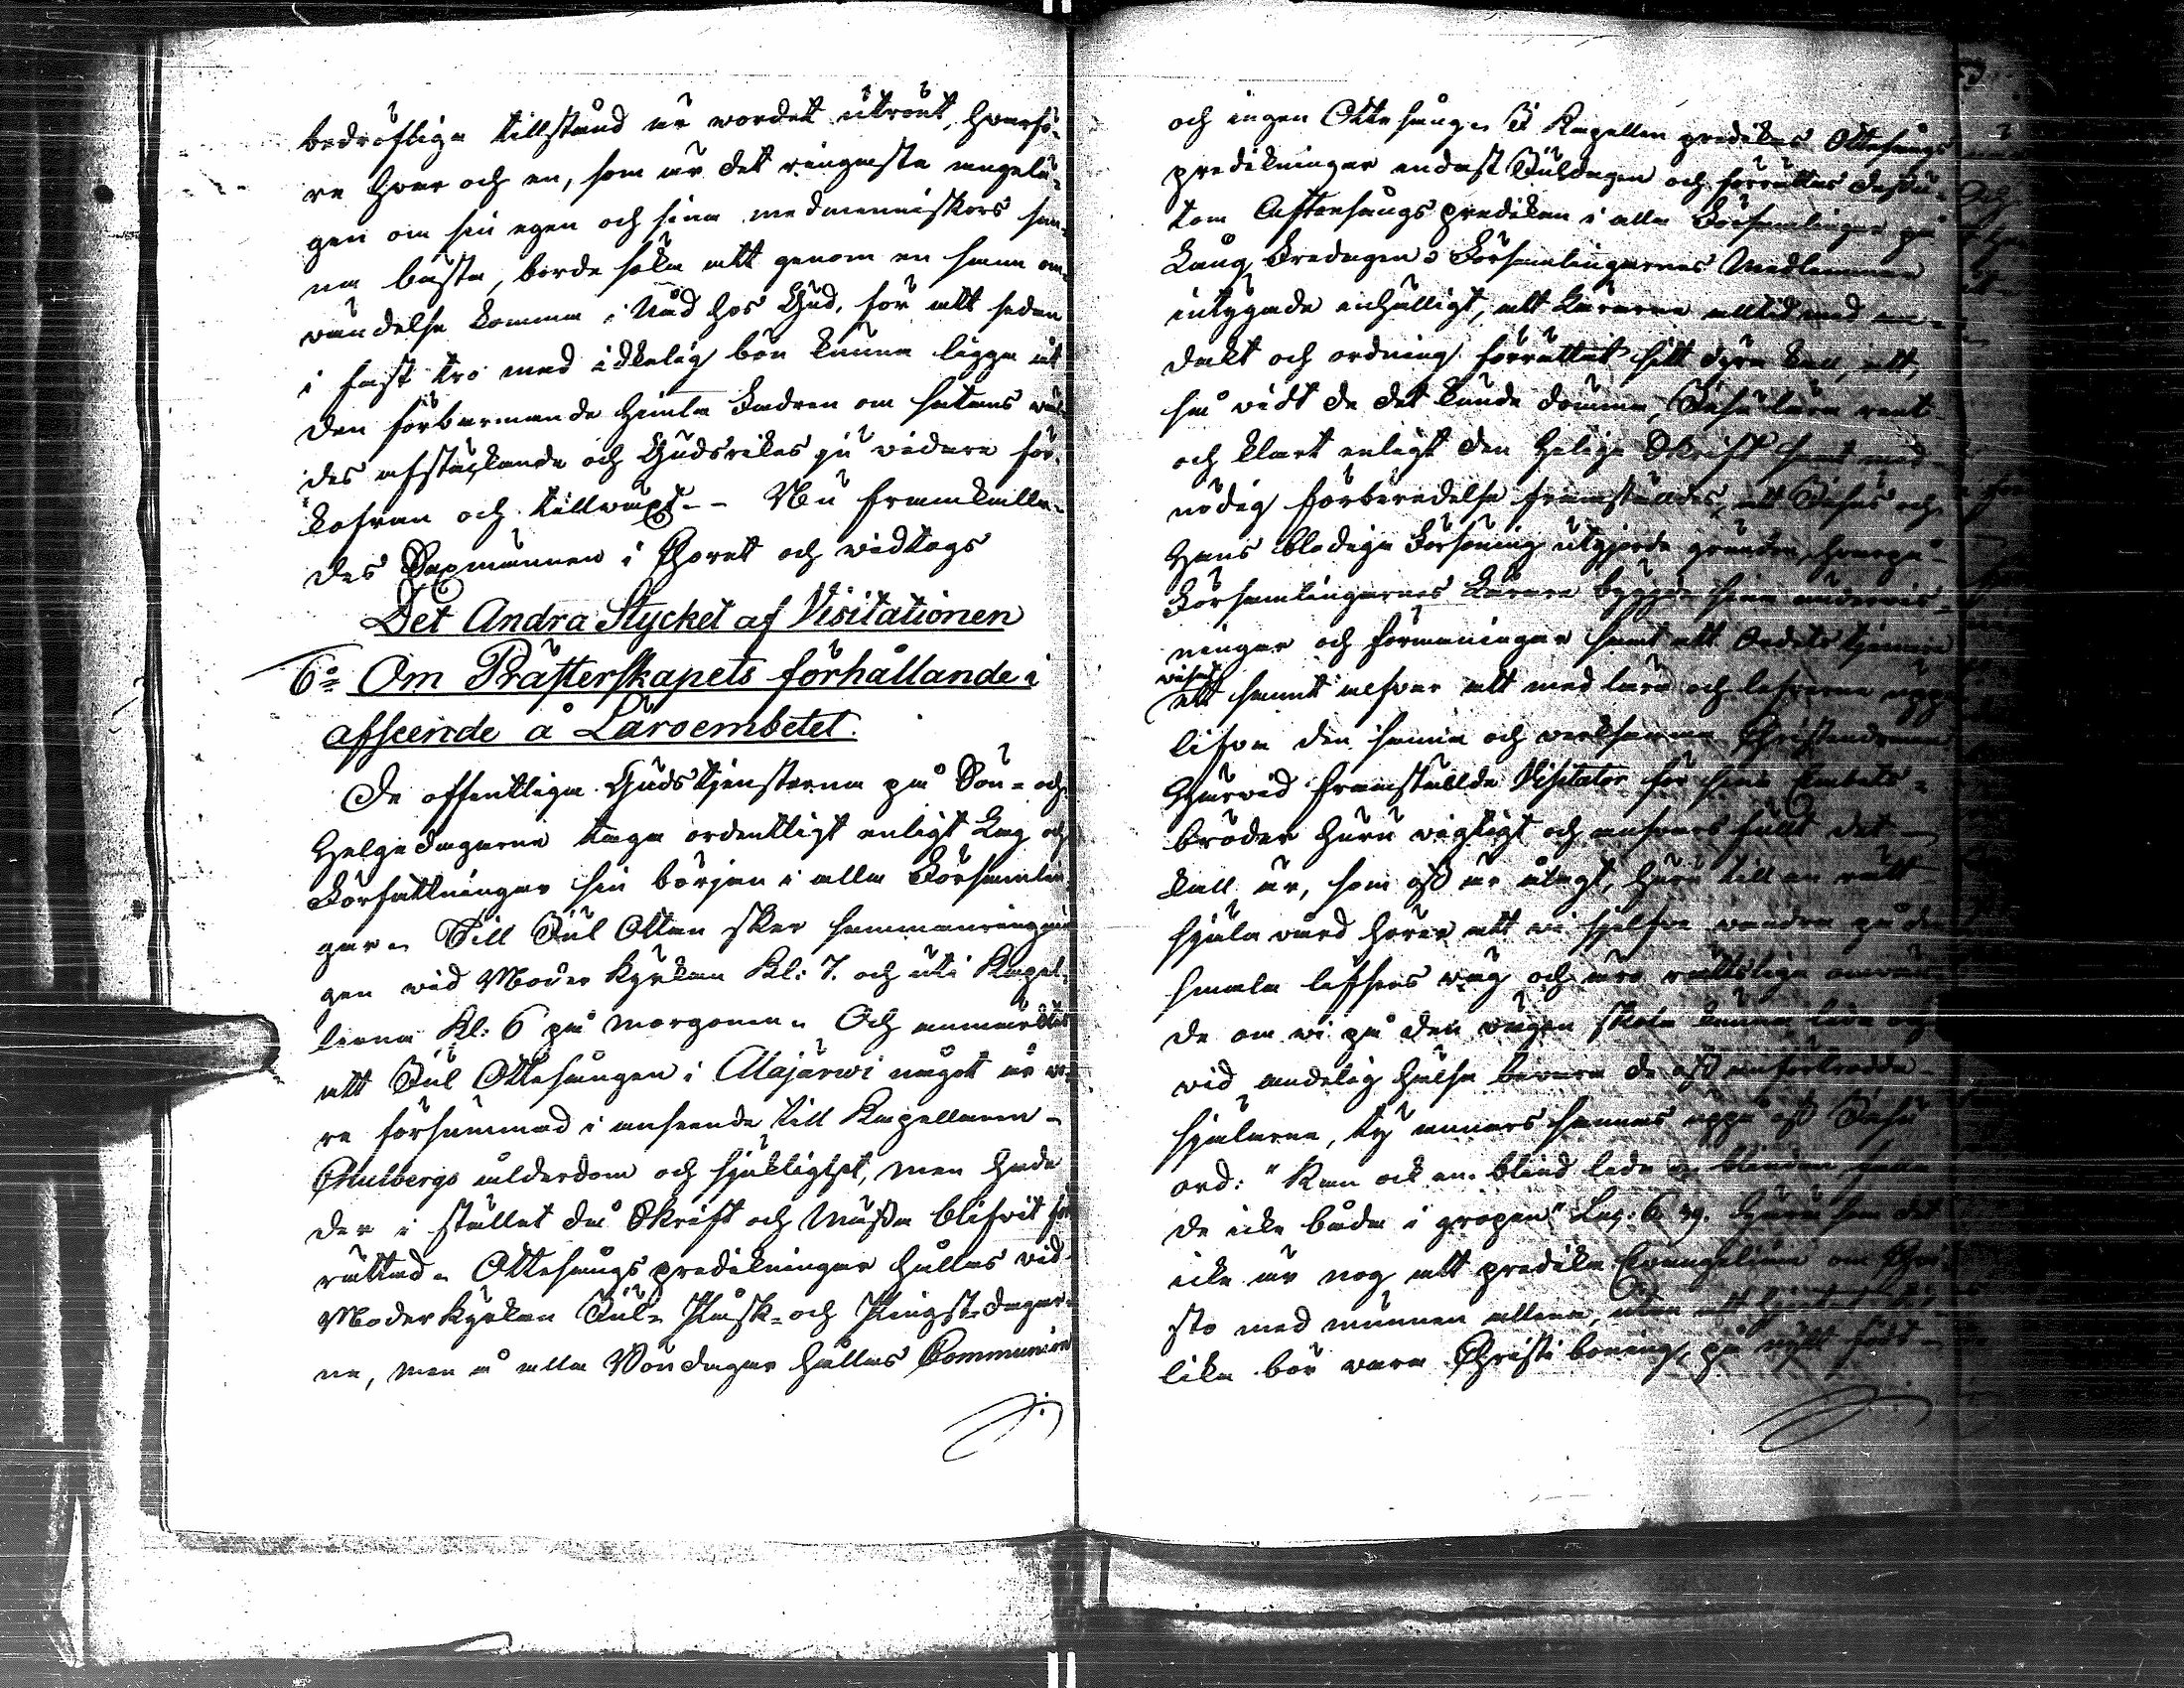 bedröfliga tillstånd är wordet utrönt, hvarfö-
re hvar och en, som är det ringaste angelä-
gen om sin egen och sina medmenniskors san-
na bästa, borde söka att genom en sann om-
vändelse komma i Nåd hos Gud, för att sedan
i fast tro med idkelig bön kunna ligga åt
den förbarmande himla Fadren om satans väl-
des afstäckande och Guds rikes ju vidare för-
kofran och tillvaxt. - Nu framkalla-
des Sexmännen i Choret och vidtogs
Det Andra Stycket af Visitationen
6:o Om Prästerskapets förhållande i
afseende å Läroembetet.
De offentliga Gudstjensterna på Sön- och
Helgedagarne taga ordentligt enligt Lag och
Författningar sin början i alla Församlin-
gar. Till Jul Ottan sker sammanringnin-
gen vid Moder Kyrkan Kl: 7. och uti Kapel-
lerna Kl: 6 på morgonen. Och anmärktes
att Jul Ottesången i Alajärwi något år va-
re försummad i anseende till Kapellanen
ålderdom och sjuklighet, men hade
der i stället då Skrift och Mässa blifvit för-
rättad. Ottesångs predikningar hållas vid
Moderkyrkan Jul- Påsk- och Pingst-dagar-
ne, men å alla Söndagar hålles Communion
och ingen Ottesång. I Kapellen predikas Ottesångs
predikningar endast Juldagen och förrättas dessu-
tom Aftonsångs predikan i alla Församlingar på
Lång Fredagen. Församlingarnes Medlemmar
intygade enhälligt, att Lärarne alltid med an-
dakt och ordning förrättat sitt dyra kall, att,
så vidt de det kunde dömma, Jesu lära rent
och klart enligt den Helige Skrift samt med
nödig förberedelse framställdes, att Jesus och
Hans blodiga Försoning utgjorde grunden, hvarpå
Församlingarnes Lärare byggde sina undervis-
ningar och förmaningar samt att Ordets tjenare
visat
ett sannt alfvar att med lära och lefverne upp-
lifva den sanna och verksamma Christendomen
Härvid framställde Visitator för sina Embets-
bröder huru vigtigt och ansvars fullt det
kall är, som oss är ålagt, huru till en rätt
själavård hörer att vi sjelfve vandra på den
smala lifsens väg och äro rätteliga omvän-
de om vi på den vägen skola kunna leda och
vid andelig hälsa bevara de oss anförtrodda
själarne, ty annars sannas uppå oss Jesu
ord: "Kan ock en blind leda en blindan, falla
de icke båda i gropen" Luc: 6. 39. Huru som det
icke är nog att predika Evangelium om Chri-
sto med munnen allena, utan att hjertat till-
lika bör vara Christi boning, på nytt födt